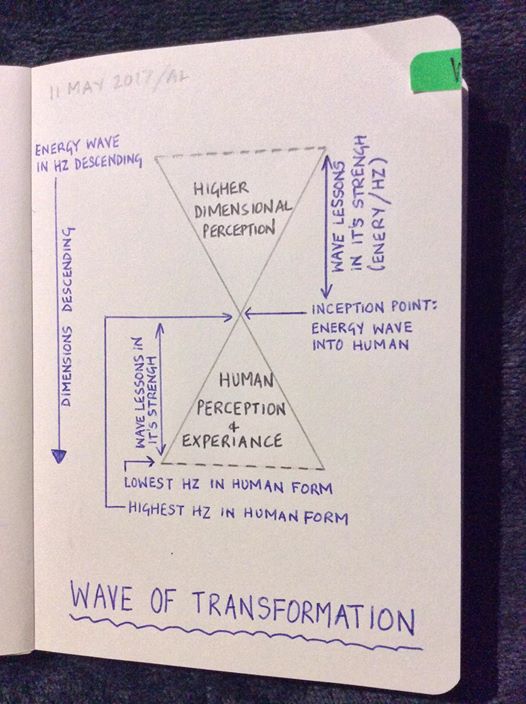 11 MAY 2017/AL
ENERGY WAVE
IN HZ DESCENDING
DIMENSIONS DESCENDING
HIGHER
DIMENSIONAL
PERCEPTION
WAVE LESSONS
IN IT'S STRENGH
(ENERY/HZ)
INCEPTION POINT:
ENERGY WAVE
INTO HUMAN
WAVE LESSONS IN
IT'S STRENGH
HUMAN
PERCEPTION
&
EXPERIANCE
LOWEST HZ IN HUMAN FORM
HIGHEST HZ IN HUMAN FORM
WAVE OF TRANSFORMATION